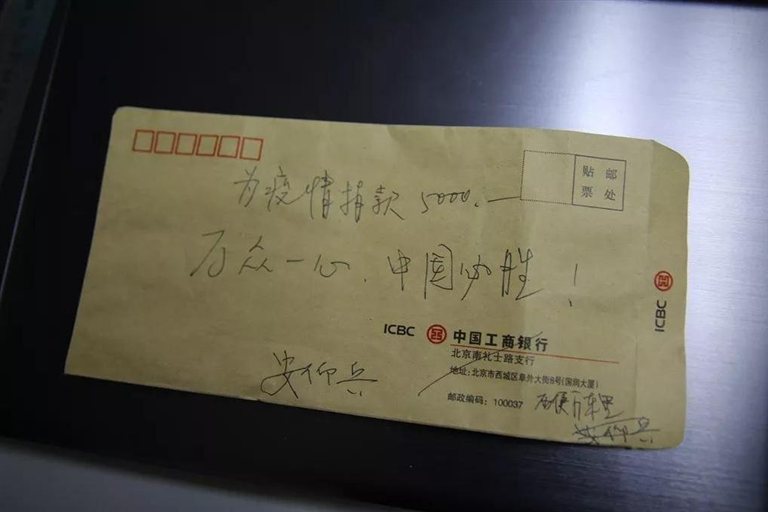 贴 邮
票 处
为疫情捐款5000.—
万众一心、中国必胜！
ICBC
ICBC 中国工商银行
北京南礼士路支行
安仰兵
地址：北京市西城区阜外大街8号（国润大厦）
邮政编码：100037
安仰兵